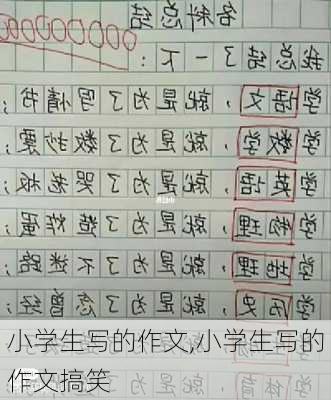 各科总结
我总结了一下:
学语文,就是为了写情书;
学数学,就是为了数抄票;
学英语,就是为了老板;
学物理,就是为了造炸蛋;
学地理,就是为了不迷路;
学历史,就是为了念曾经;
学体育
小学生写的作文,小学生写的
作文搞笑